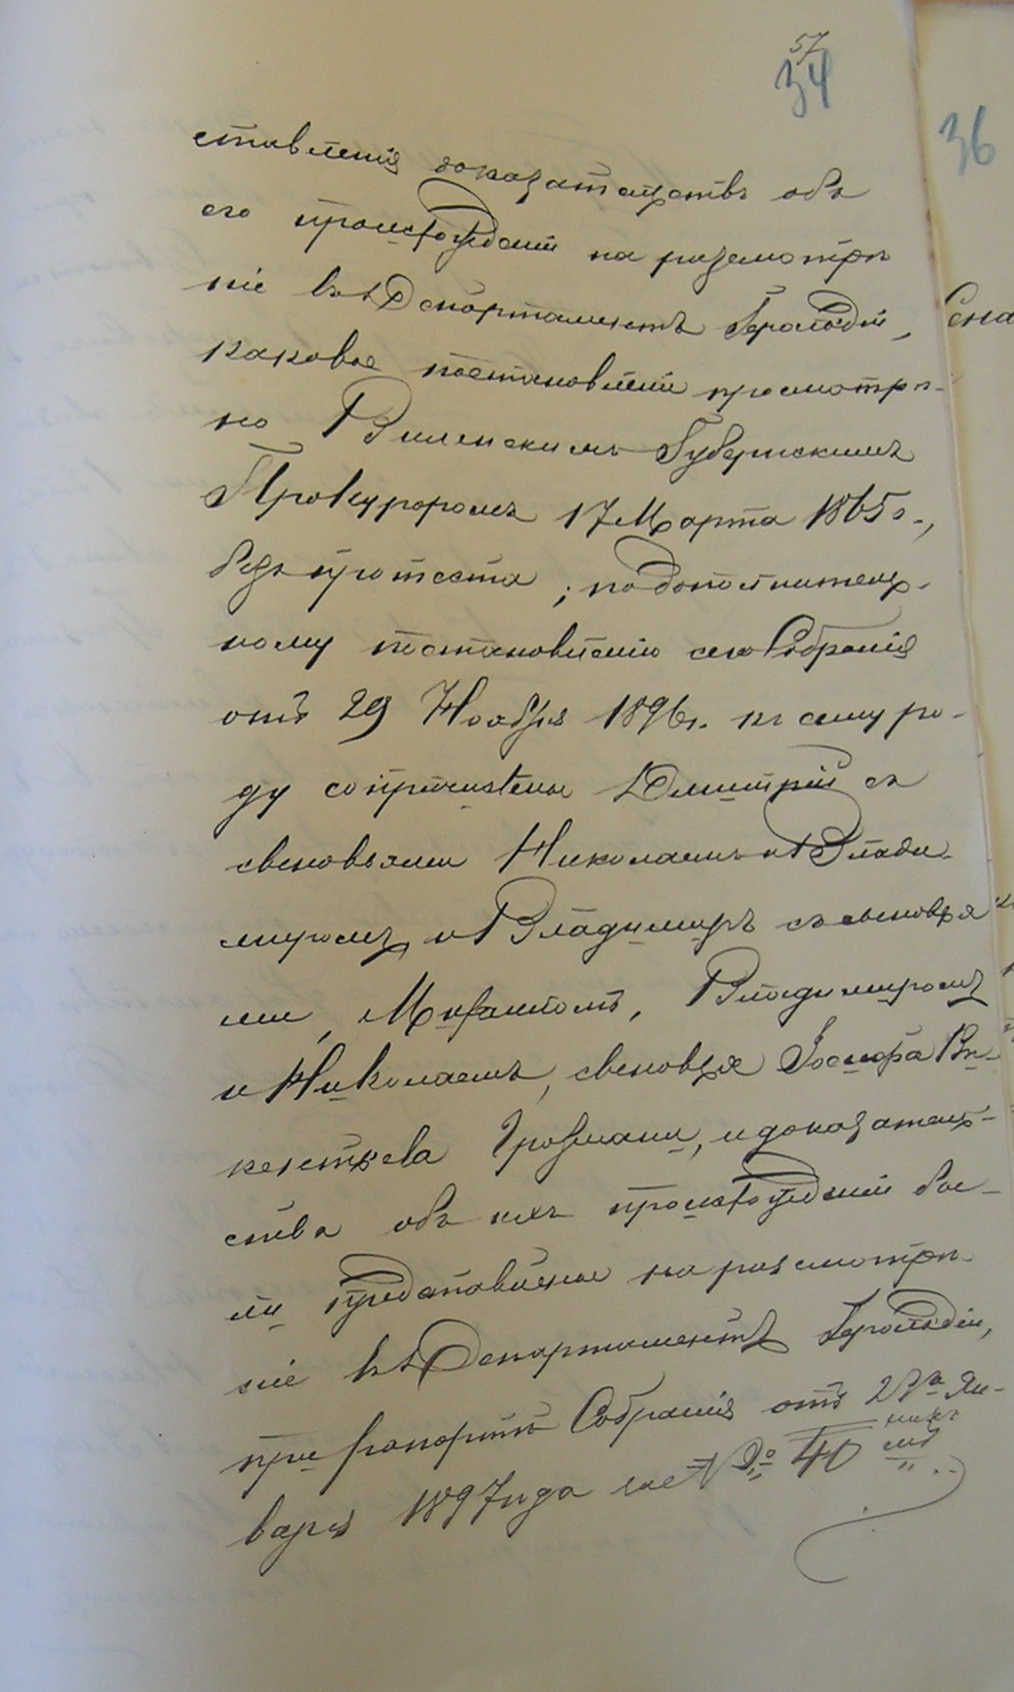 57
34
36
ставленія доказательствъ объ
его происхожденіи на разсмотрѣ
ніе въ Департаментъ Герольдіи,
Сена
каковое постановленіе просмотрѣ-
но Виленскимъ Губернскимъ
Прокуроромъ 17 Марта 1865 г.,
безъ протеста; по дополнитель-
ному постановленію сего Собранія
отъ 29 Ноября 1896 г. къ сему ро-
ду сопричислены Дмитрій съ
сыновьями Николаемъ и Влади-
миромъ, и Владимиръ съ сыновья
ми, Михаиломъ, Владимиромъ
и Николаемъ, сыновья Іосифа Ви-
кентьева и доказатель-
ства объ ихъ происхожденіи бы-
ли представлены на разсмотрѣ-
ніе въ Департаментъ Герольдіи,
при рапортѣ Собранія отъ Ян-
варя 1897 года за № 40